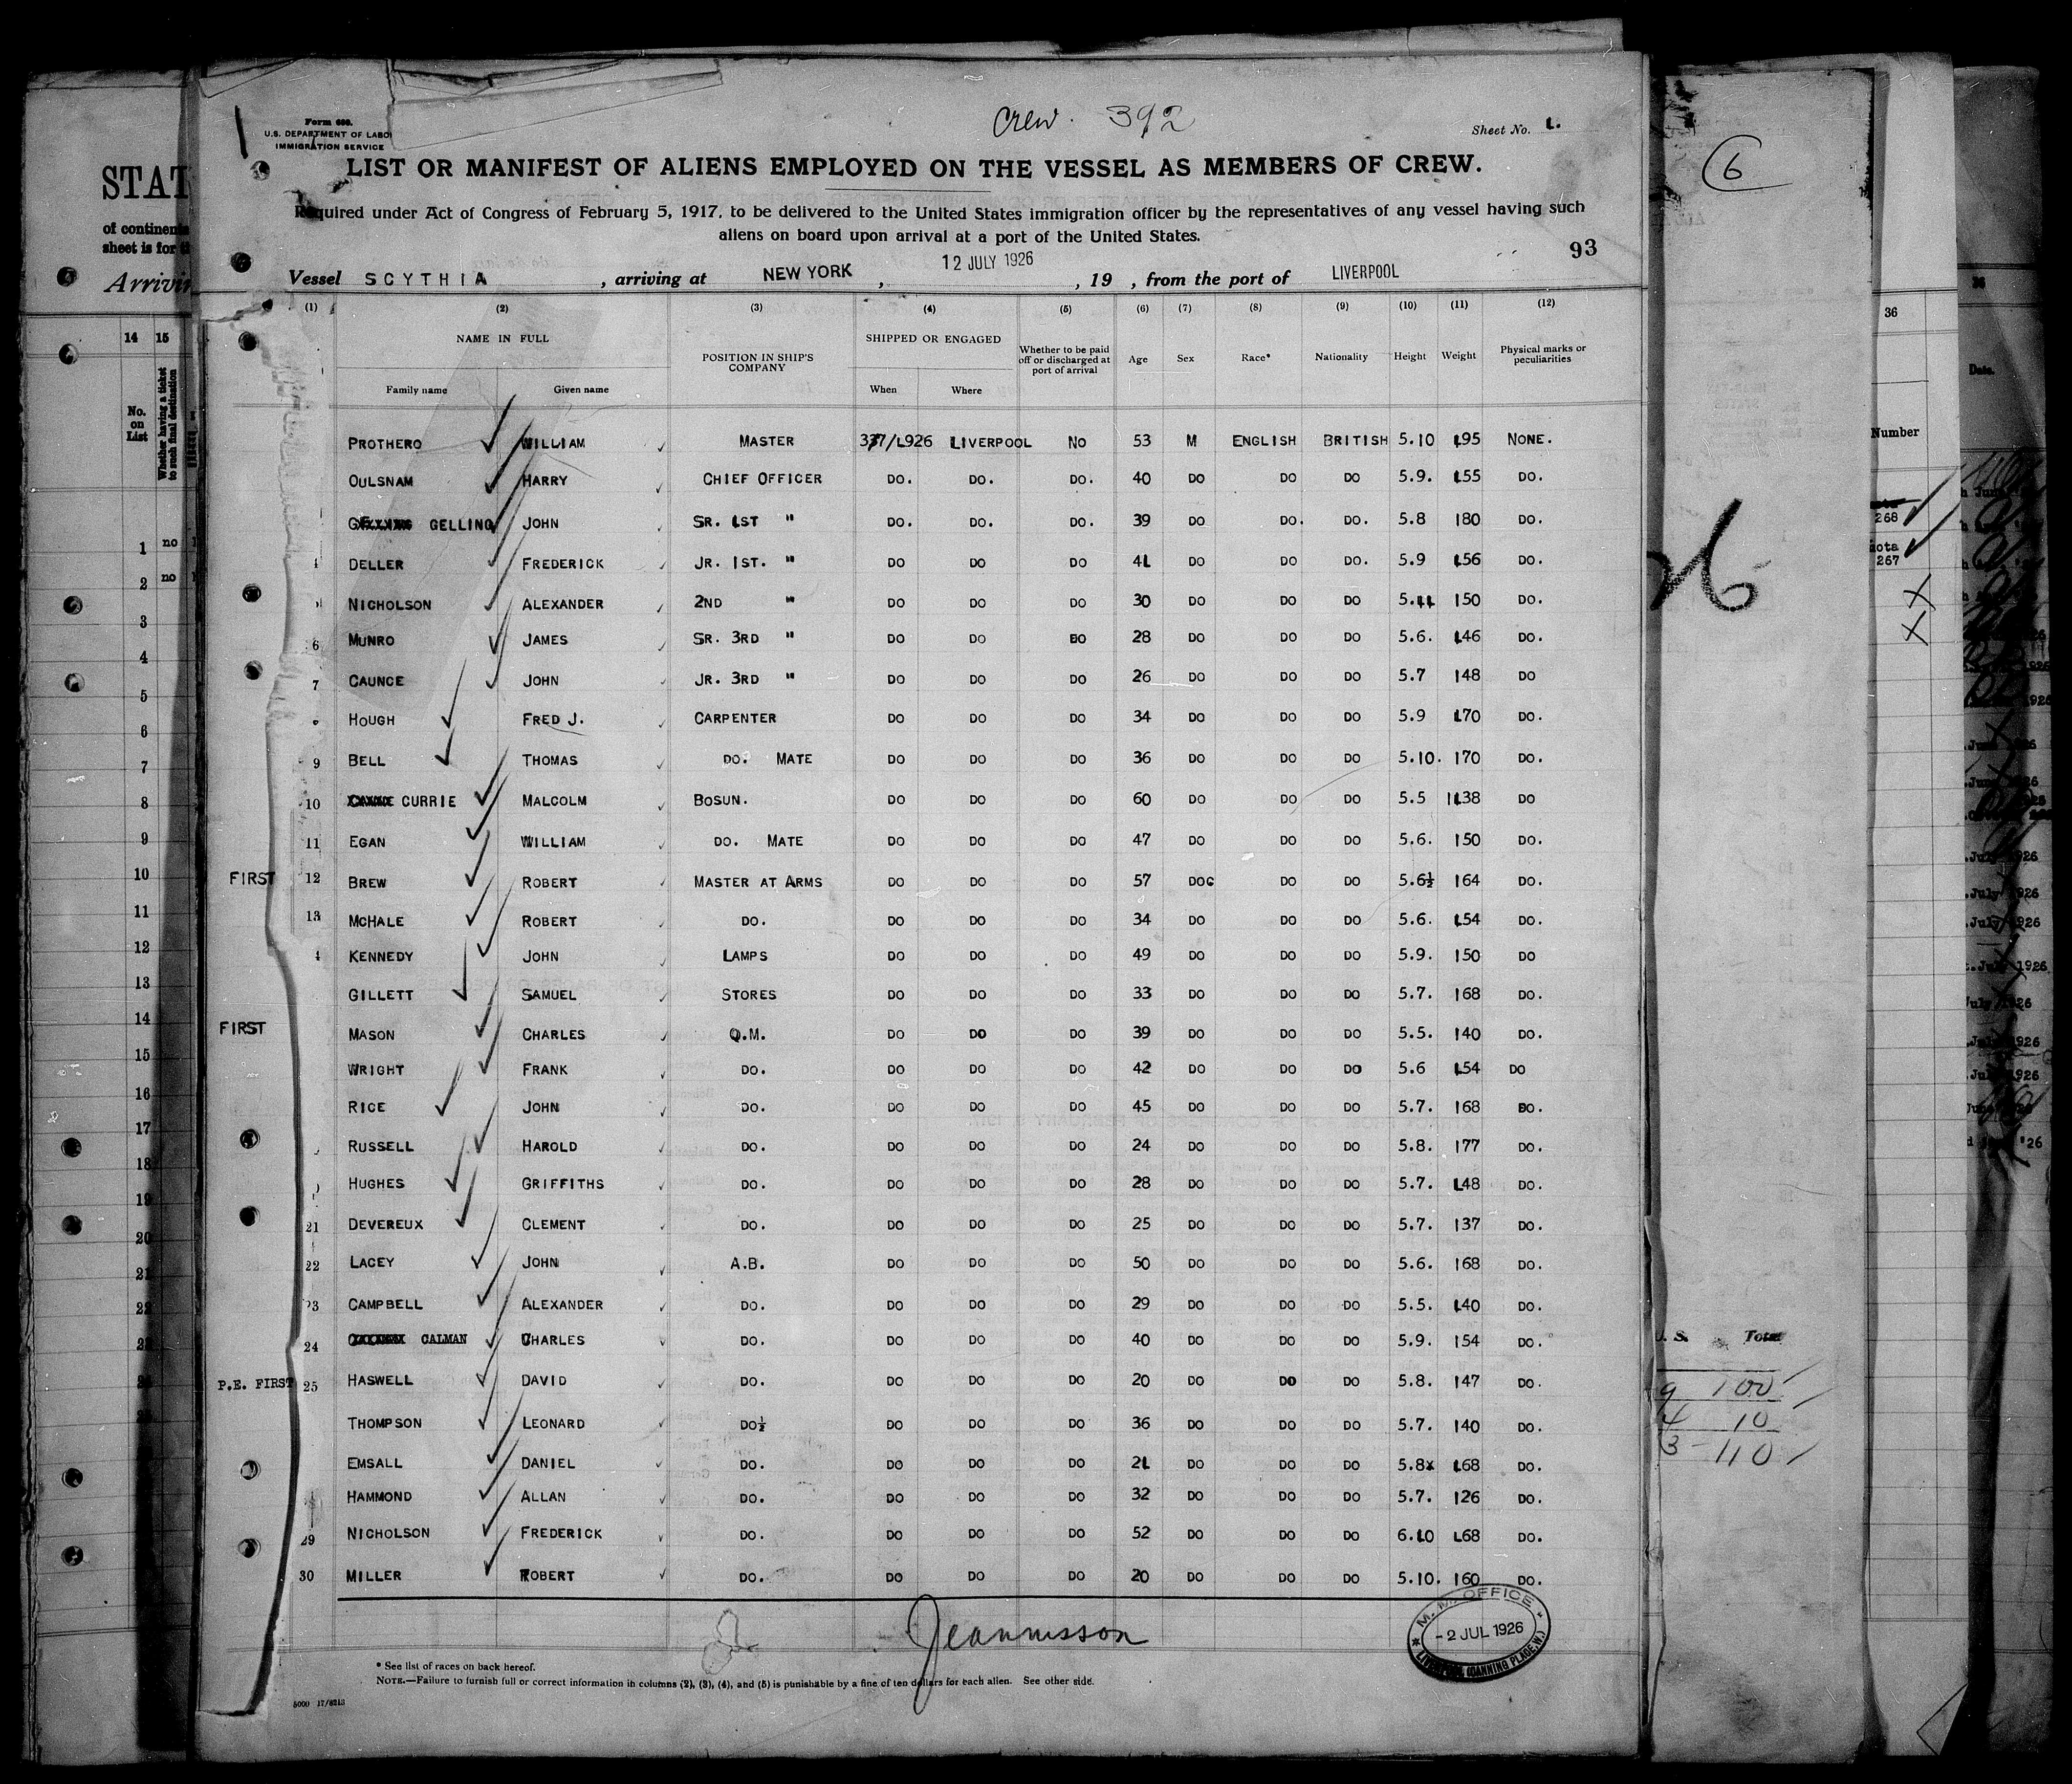 Crew. 392
Form 680.
U.S. DEPARTMENT OF LABO
IMMIGRATION SERVICE
Sheet No. 1.
LIST OR MANIFEST OF ALIENS EMPLOYED ON THE VESSEL AS MEMBERS OF CREW.
Required under Act of Congress of February 5, 1917, to be delivered to the United States immigration officer by the representatives of any vessel having such
aliens on board upon arrival at a port of the United States.
93
Vessel SCYTHIA, arriving at NEW YORK, 12 JULY 1926, 19 , from the port of LIVERPOOL
(1) (2) (3) (4) (5) (6) (7) (8) (9) (10) (11) (12)
NAME IN FULL POSITION IN SHIP'S COMPANY SHIPPED OR ENGAGED Whether to be paid off or discharged at port of arrival Age Sex Race* Nationality Height Weight Physical marks or peculiarities
Family name Given name When Where
PROTHERO WILLIAM MASTER LIVERPOOL NO 53 M ENGLISH BRITISH 5.10 195 NONE.
OULSNAM HARRY CHIEF OFFICER DO. DO. DO. 40 DO DO DO 5.9. 155 DO.
GELLING JOHN SR. 1ST " DO. DO. DO. 39 DO DO. DO. 5.8 180 DO.
DELLER FREDERICK JR. 1ST. " DO DO DO 41 DO DO DO. 5.9 156 DO.
NICHOLSON ALEXANDER 2ND " DO DO DO 30 DO DO DO 5.11 150 DO.
6 MUNRO JAMES SR. 3RD " DO DO DO 28 DO DO DO 5.6. 146 DO.
7 CAUNCE JOHN JR. 3RD " DO DO DO 26 DO DO DO 5.7 148 DO
HOUGH FRED J. CARPENTER DO DO DO 34 DO DO DO 5.9 170 DO.
9 BELL THOMAS DO. MATE DO DO DO 36 DO DO DO 5.10. 170 DO.
10 CURRIE MALCOLM BOSUN. DO DO DO 60 DO DO DO 5.5 138 DO
11 EGAN WILLIAM DO. MATE DO DO DO 47 DO DO DO 5.6. 150 DO.
FIRST 12 BREW ROBERT MASTER AT ARMS DO DO DO 57 DO DO DO 5.6½ 164 DO.
13 MCHALE ROBERT DO. DO DO DO 34 DO DO DO 5.6. 154 DO.
4 KENNEDY JOHN LAMPS DO DO DO 49 DO DO DO 5.9. 150 DO
GILLETT SAMUEL STORES DO DO DO 33 DO DO DO 5.7. 168 DO.
FIRST MASON CHARLES Q.M. DO DO DO 39 DO DO DO 5.5. 140 DO.
WRIGHT FRANK DO. DO DO DO 42 DO DO DO 5.6 154 DO
RICE JOHN DO. DO DO DO 45 DO DO DO 5.7. 168 DO.
RUSSELL HAROLD DO. DO DO DO 24 DO DO DO 5.8. 177 DO.
HUGHES GRIFFITHS DO. DO DO DO 28 DO DO DO 5.7. 148 DO.
21 DEVEREUX CLEMENT DO. DO DO DO 25 DO DO DO 5.7. 137 DO.
22 LACEY JOHN A.B. DO DO DO 50 DO DO DO 5.6. 168 DO.
23 CAMPBELL ALEXANDER DO. DO DO DO 29 DO DO DO 5.5. 140 DO.
24 CALMAN CHARLES DO. DO DO DO 40 DO DO DO 5.9. 154 DO.
P.E. FIRST 25 HASWELL DAVID DO. DO DO DO 20 DO DO DO 5.8. 147 DO.
THOMPSON LEONARD DO½ DO DO DO 36 DO DO DO 5.7. 140 DO.
EMSALL DANIEL DO. DO DO DO 21 DO DO DO 5.8 168 DO.
HAMMOND ALLAN DO. DO DO DO 32 DO DO DO 5.7. 126 DO.
29 NICHOLSON FREDERICK DO. DO DO DO 52 DO DO DO 6.10 168 DO.
30 MILLER ROBERT DO. DO DO DO 20 DO DO DO 5.10. 160 DO.
M. M. OFFICE
-2 JUL 1926
LIVERPOOL (CANNING PLACE.W.)
* See list of races on back hereof.
NOTE.—Failure to furnish full or correct information in columns (2), (3), (4), and (5) is punishable by a fine of ten dollars for each alien. See other side.
5000 17/8213
STAT
of continen
sheet is for
Arrivin
14 15
No. on List
Whether having a ticket to such final destination
1 no
2 no
3
4
5
6
7
8
9
10
11
12
13
14
15
16
17
18
19
20
21
22
23
6
26
S. Total
9 100
4 10
3 110
36
Number
268
ota
267
Date.